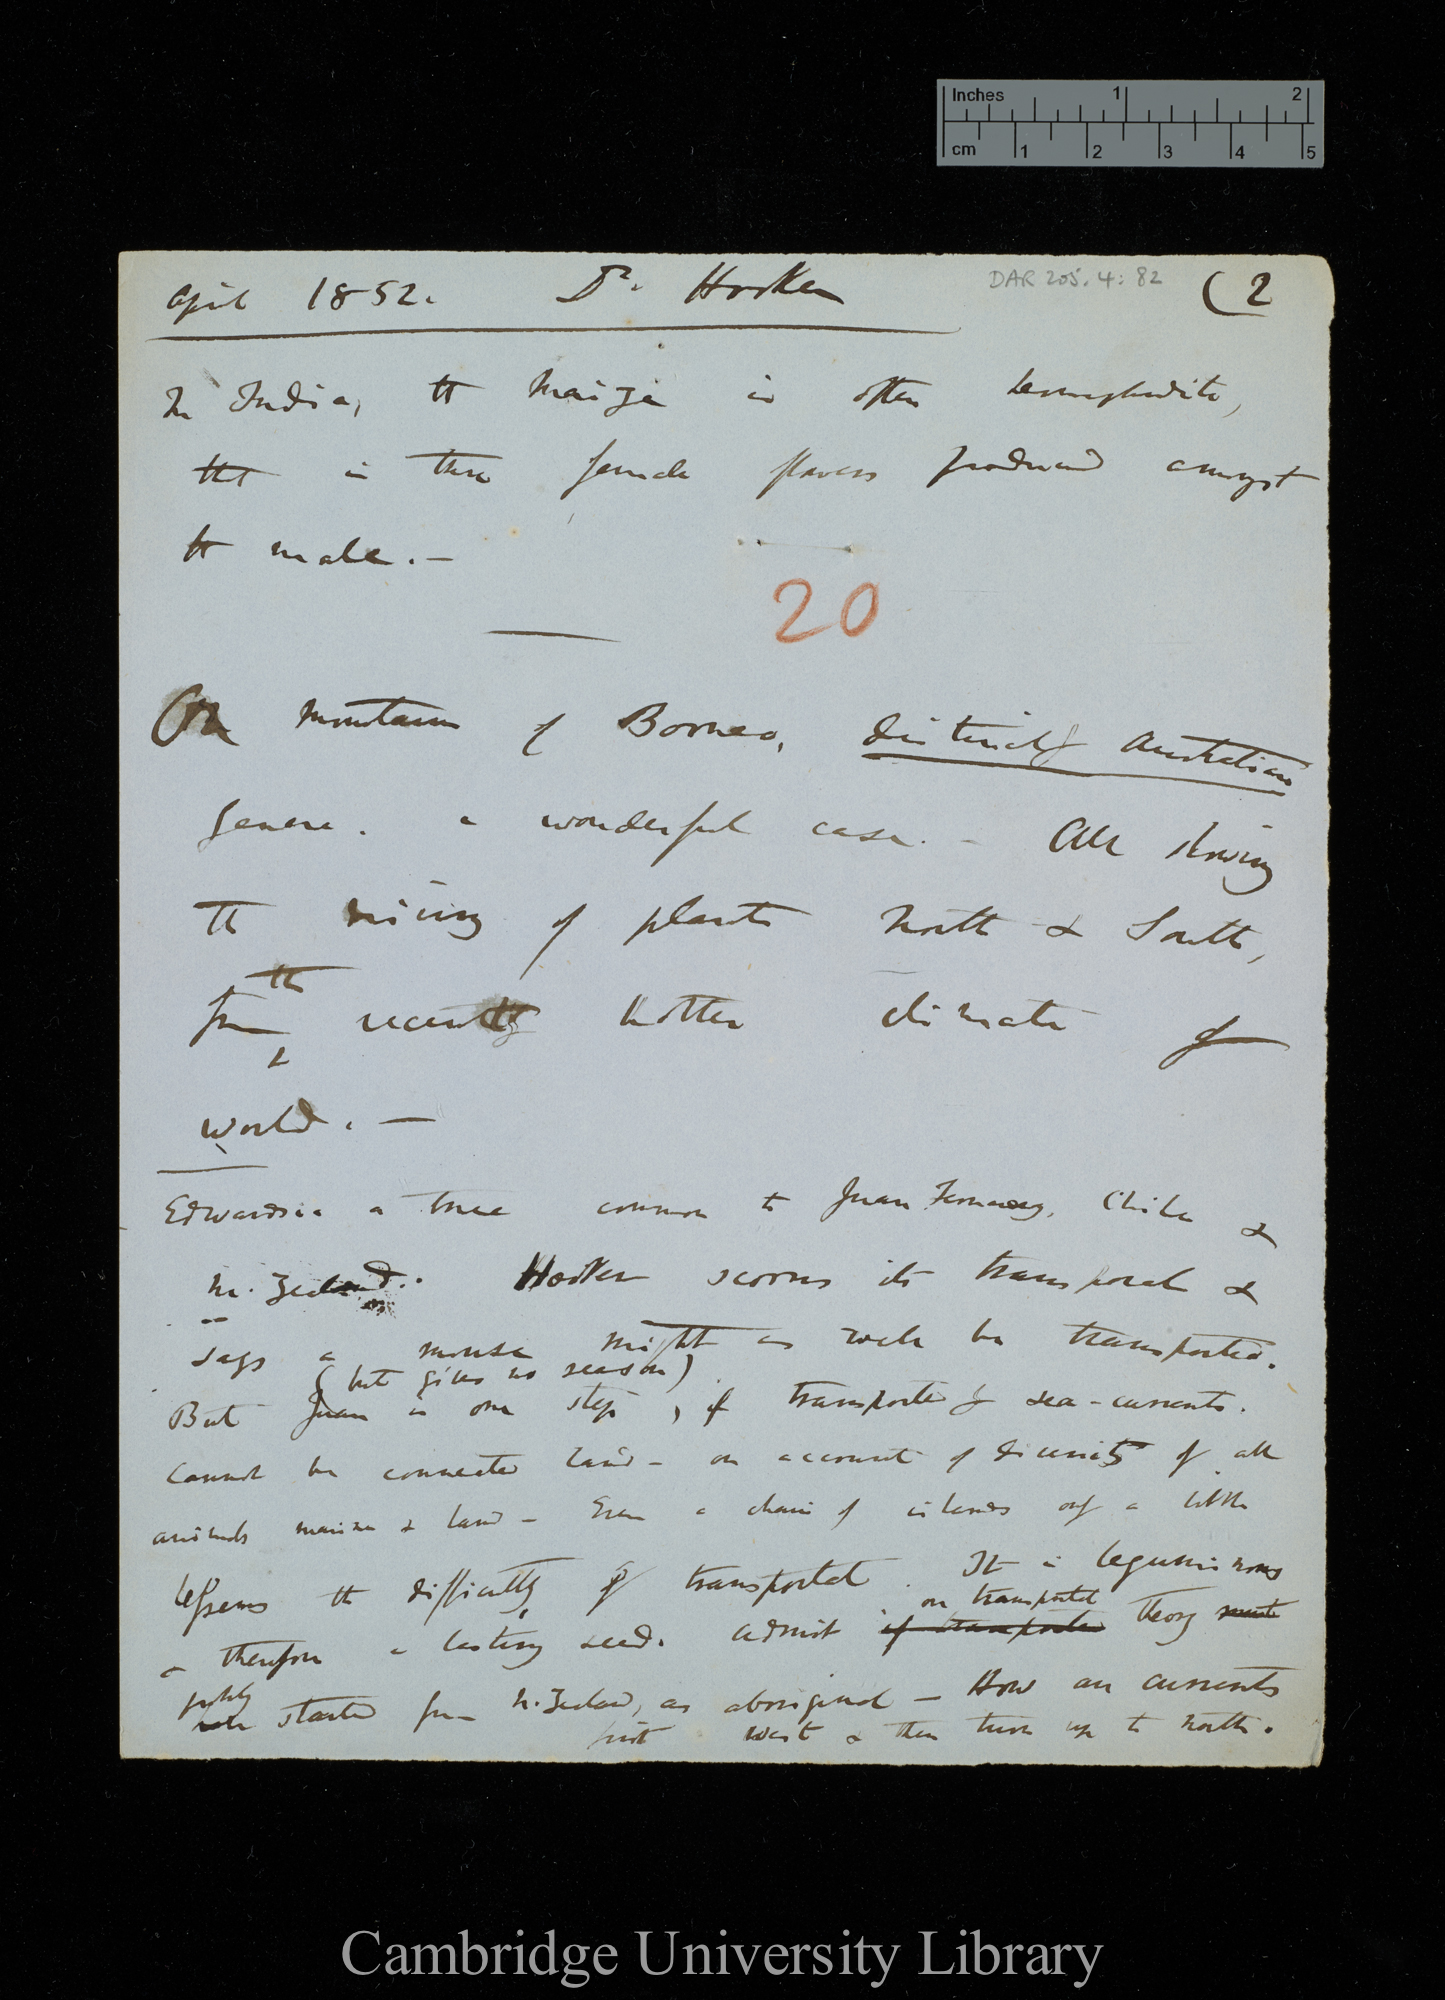 Inches 1 2
cm 1 2 3 4 5
April 1852. Dr. Hooker DAR 205.4: 82 (2
In India, the Maize is often hermaphrodite,
that is there female flowers produced amongst
the male. —
20
On mountains of Borneo, distinctly Australian
genera. a wonderful case. — All showing
the mixing of plants North & South,
the
from recently hotter climate of
world. —
Edwardsia a tree common to Juan Fernandez, Chile &
N. Zealand. Hooker scorns its transportal &
says a mouse might as well be transported.
(but gives no reason)
But Juan is one step, if transported by sea-currents.
Cannot be connected land — on account of diversity of all
animals marine & land — Even a chain of islands only a little
lessens the difficulty of transportal. It is leguminous
on transportal
& therefore a lasting seed. admit if transported theory must
probably
have started from N. Zealand, as aboriginal — How are currents
first west & then turn up to north.
Cambridge University Library